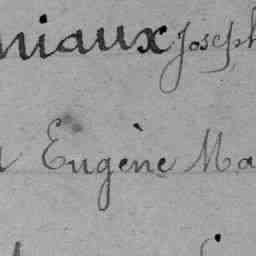 niaux Joseph
Eugène Ma